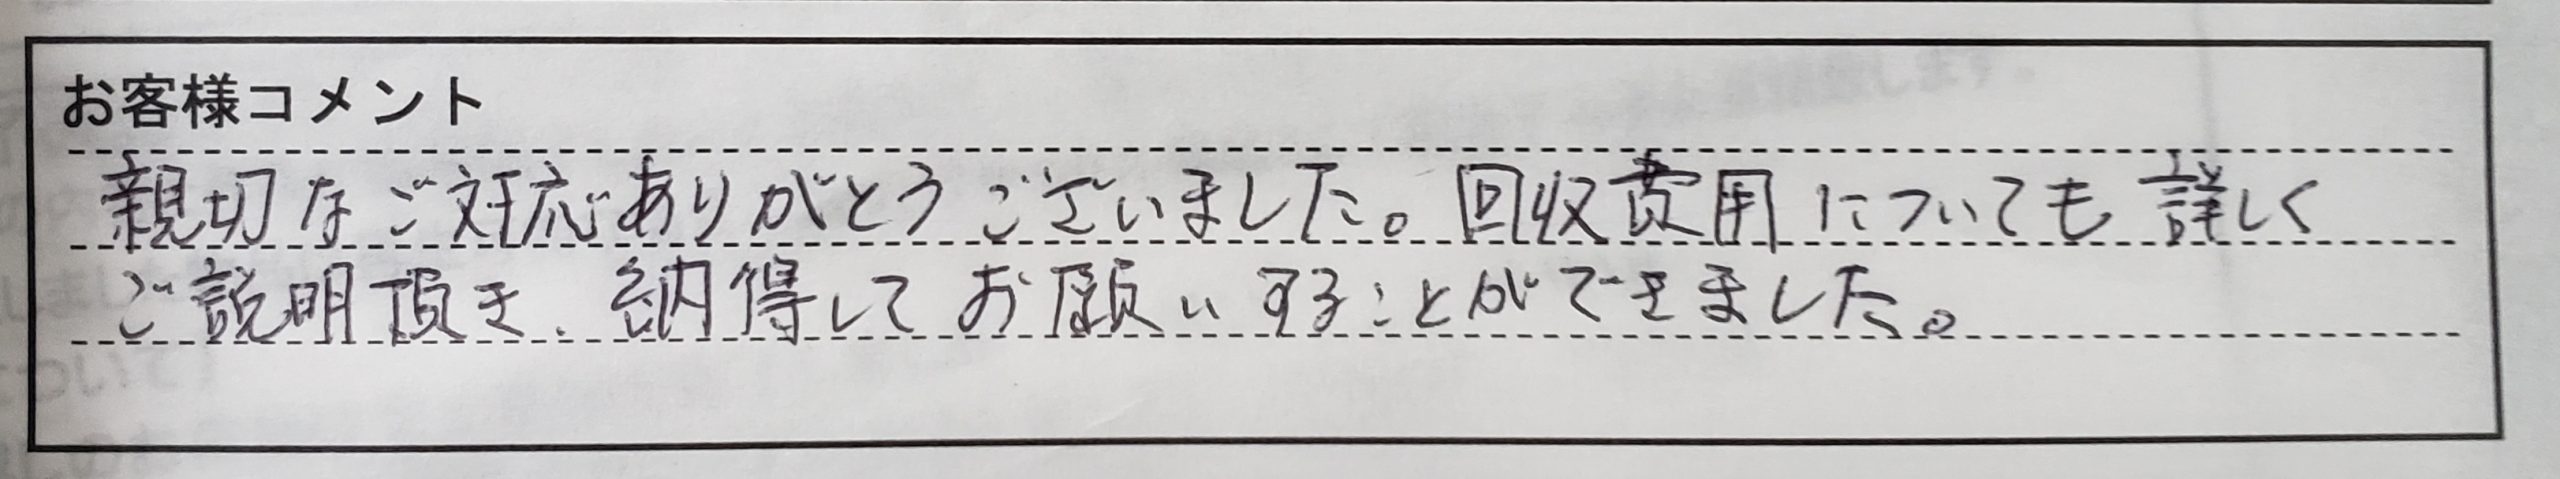 お客様コメント
親切なご対応ありがとうございました。回収費用についても詳しく
ご説明頂き、納得してお願いすることができました。